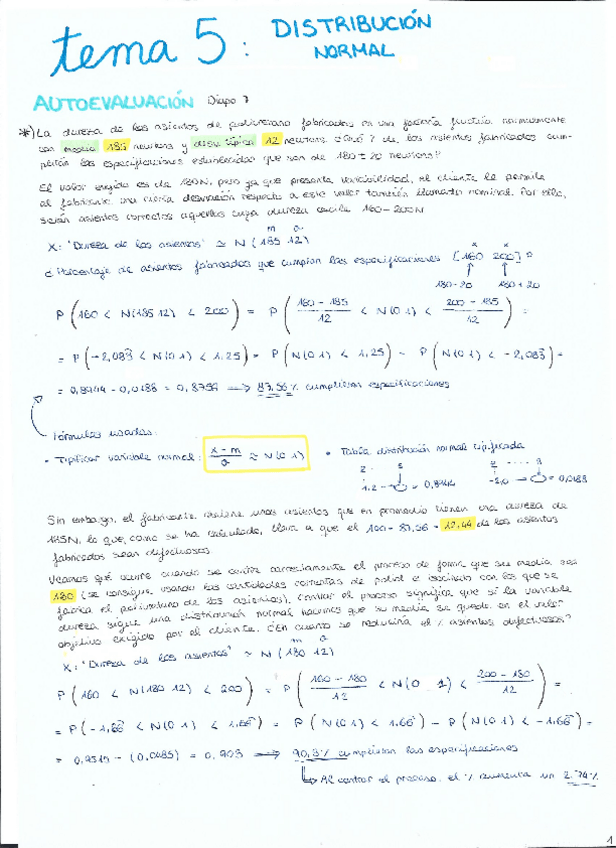 tema 5: DISTRIBUCIÓN NORMAL
AUTOEVALUACIÓN Diapo 7
*) La dureza de los asientos de poliuretano fabricados en una factoría fluctúa normalmente
con media 185 neutrons y desv. típica 12 neutrons. ¿Qué % de los asientos fabricados cum-
plirán las especificaciones establecidas que son de 180 ± 20 neutrons?
El valor exigido es de 180N, pero ya que presenta variabilidad, el cliente le permite
al fabricante una cierta desviación respecto a este valor también llamado nominal. Por ello,
serán asientos correctos aquellos cuya dureza oscile 160-200N
m σ
X: "Dureza de los asientos" ≈ N (185 12)
¿Porcentaje de asientos fabricados que cumplan las especificaciones [160 200]?
180-20 180+20
P (160 < N(185 12) < 200) = P ( 160 - 185 / 12 < N(0 1) < 200 - 185 / 12 ) =
= P (-2,083 < N(0 1) < 1,25) = P (N(0 1) < 1,25) - P (N(0 1) < -2,083) =
= 0,8944 - 0,0188 = 0,8756 → 87,56% cumplirían especificaciones
Fórmulas usadas:
• Tipificar variable normal: x - m / σ ≈ N(0 1) • Tabla distribución normal tipificada
z 5 z ... 8
1.2 → 0,8944 -2,0 → 0,0188
Sin embargo, el fabricante obtiene unos asientos que en promedio tienen una dureza de
185N, lo que, como se ha calculado, lleva a que el 100 - 87,56 = 12,44 de los asientos
fabricados sean defectuosos
Veamos qué ocurre cuando se centra correctamente el proceso de forma que su media sea
180 (se consigue usando las cantidades correctas de poliol e isocianato con las que se
fabrica el poliuretano de los asientos), centrar el proceso significa que si la variable
dureza sigue una distribución normal hacemos que su media se quede en el valor
objetivo exigido por el cliente. ¿En cuánto se reduciría el % asientos defectuosos?
m σ
X: "Dureza de los asientos" ≈ N (180 12)
P (160 < N(180 12) < 200) = P ( 160 - 180 / 12 < N(0 1) < 200 - 180 / 12 ) =
= P (-1,66 < N(0 1) < 1,66) = P (N(0 1) < 1,66) - P (N(0 1) < -1,66) =
= 0,9515 - (0,0485) = 0,903 → 90,3% cumplirían las especificaciones
↳ Al centrar el proceso, el % aumenta un 2.74%
1